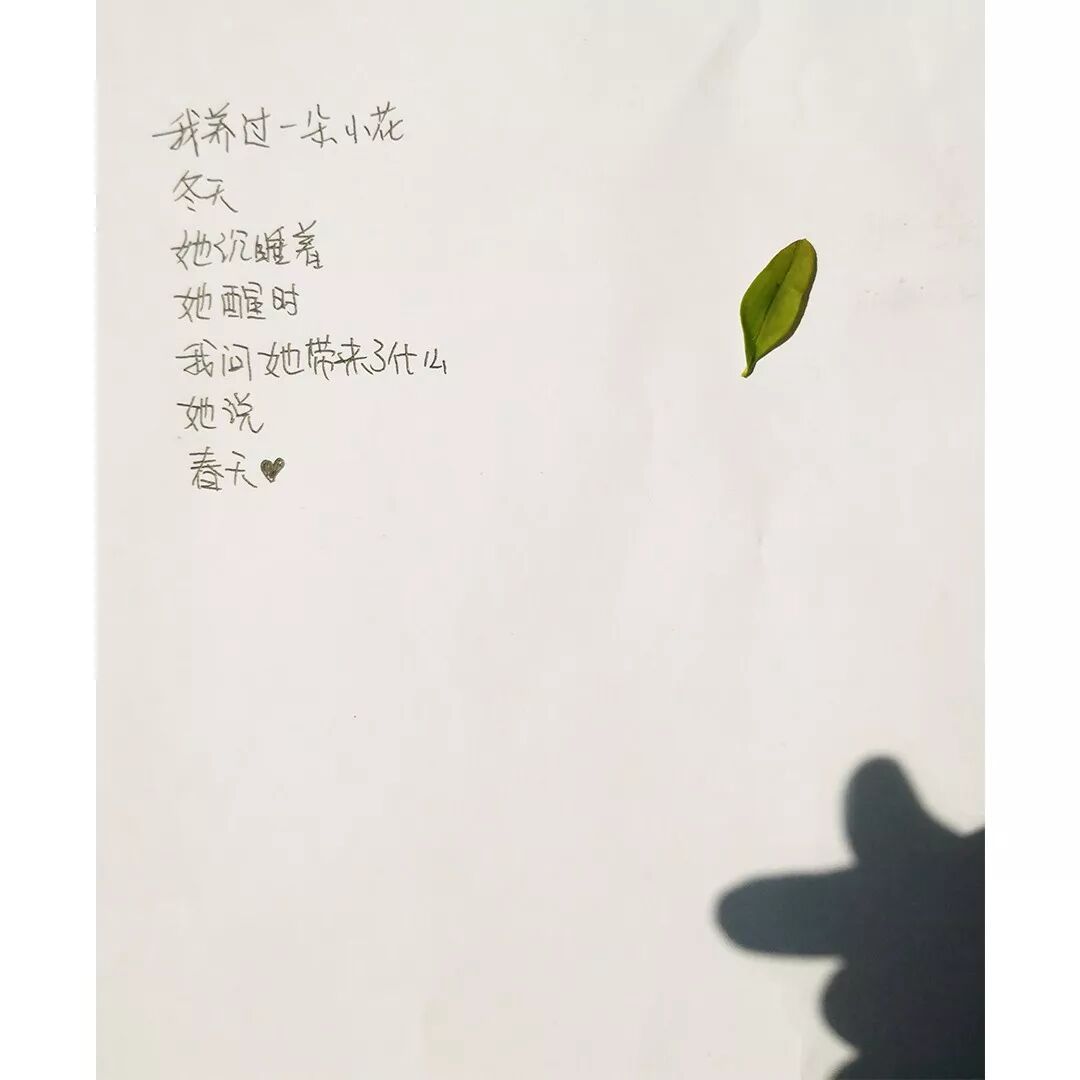 我养过一朵小花
冬天
她沉睡着
她醒时
我问她带来了什么
她说
春天♥